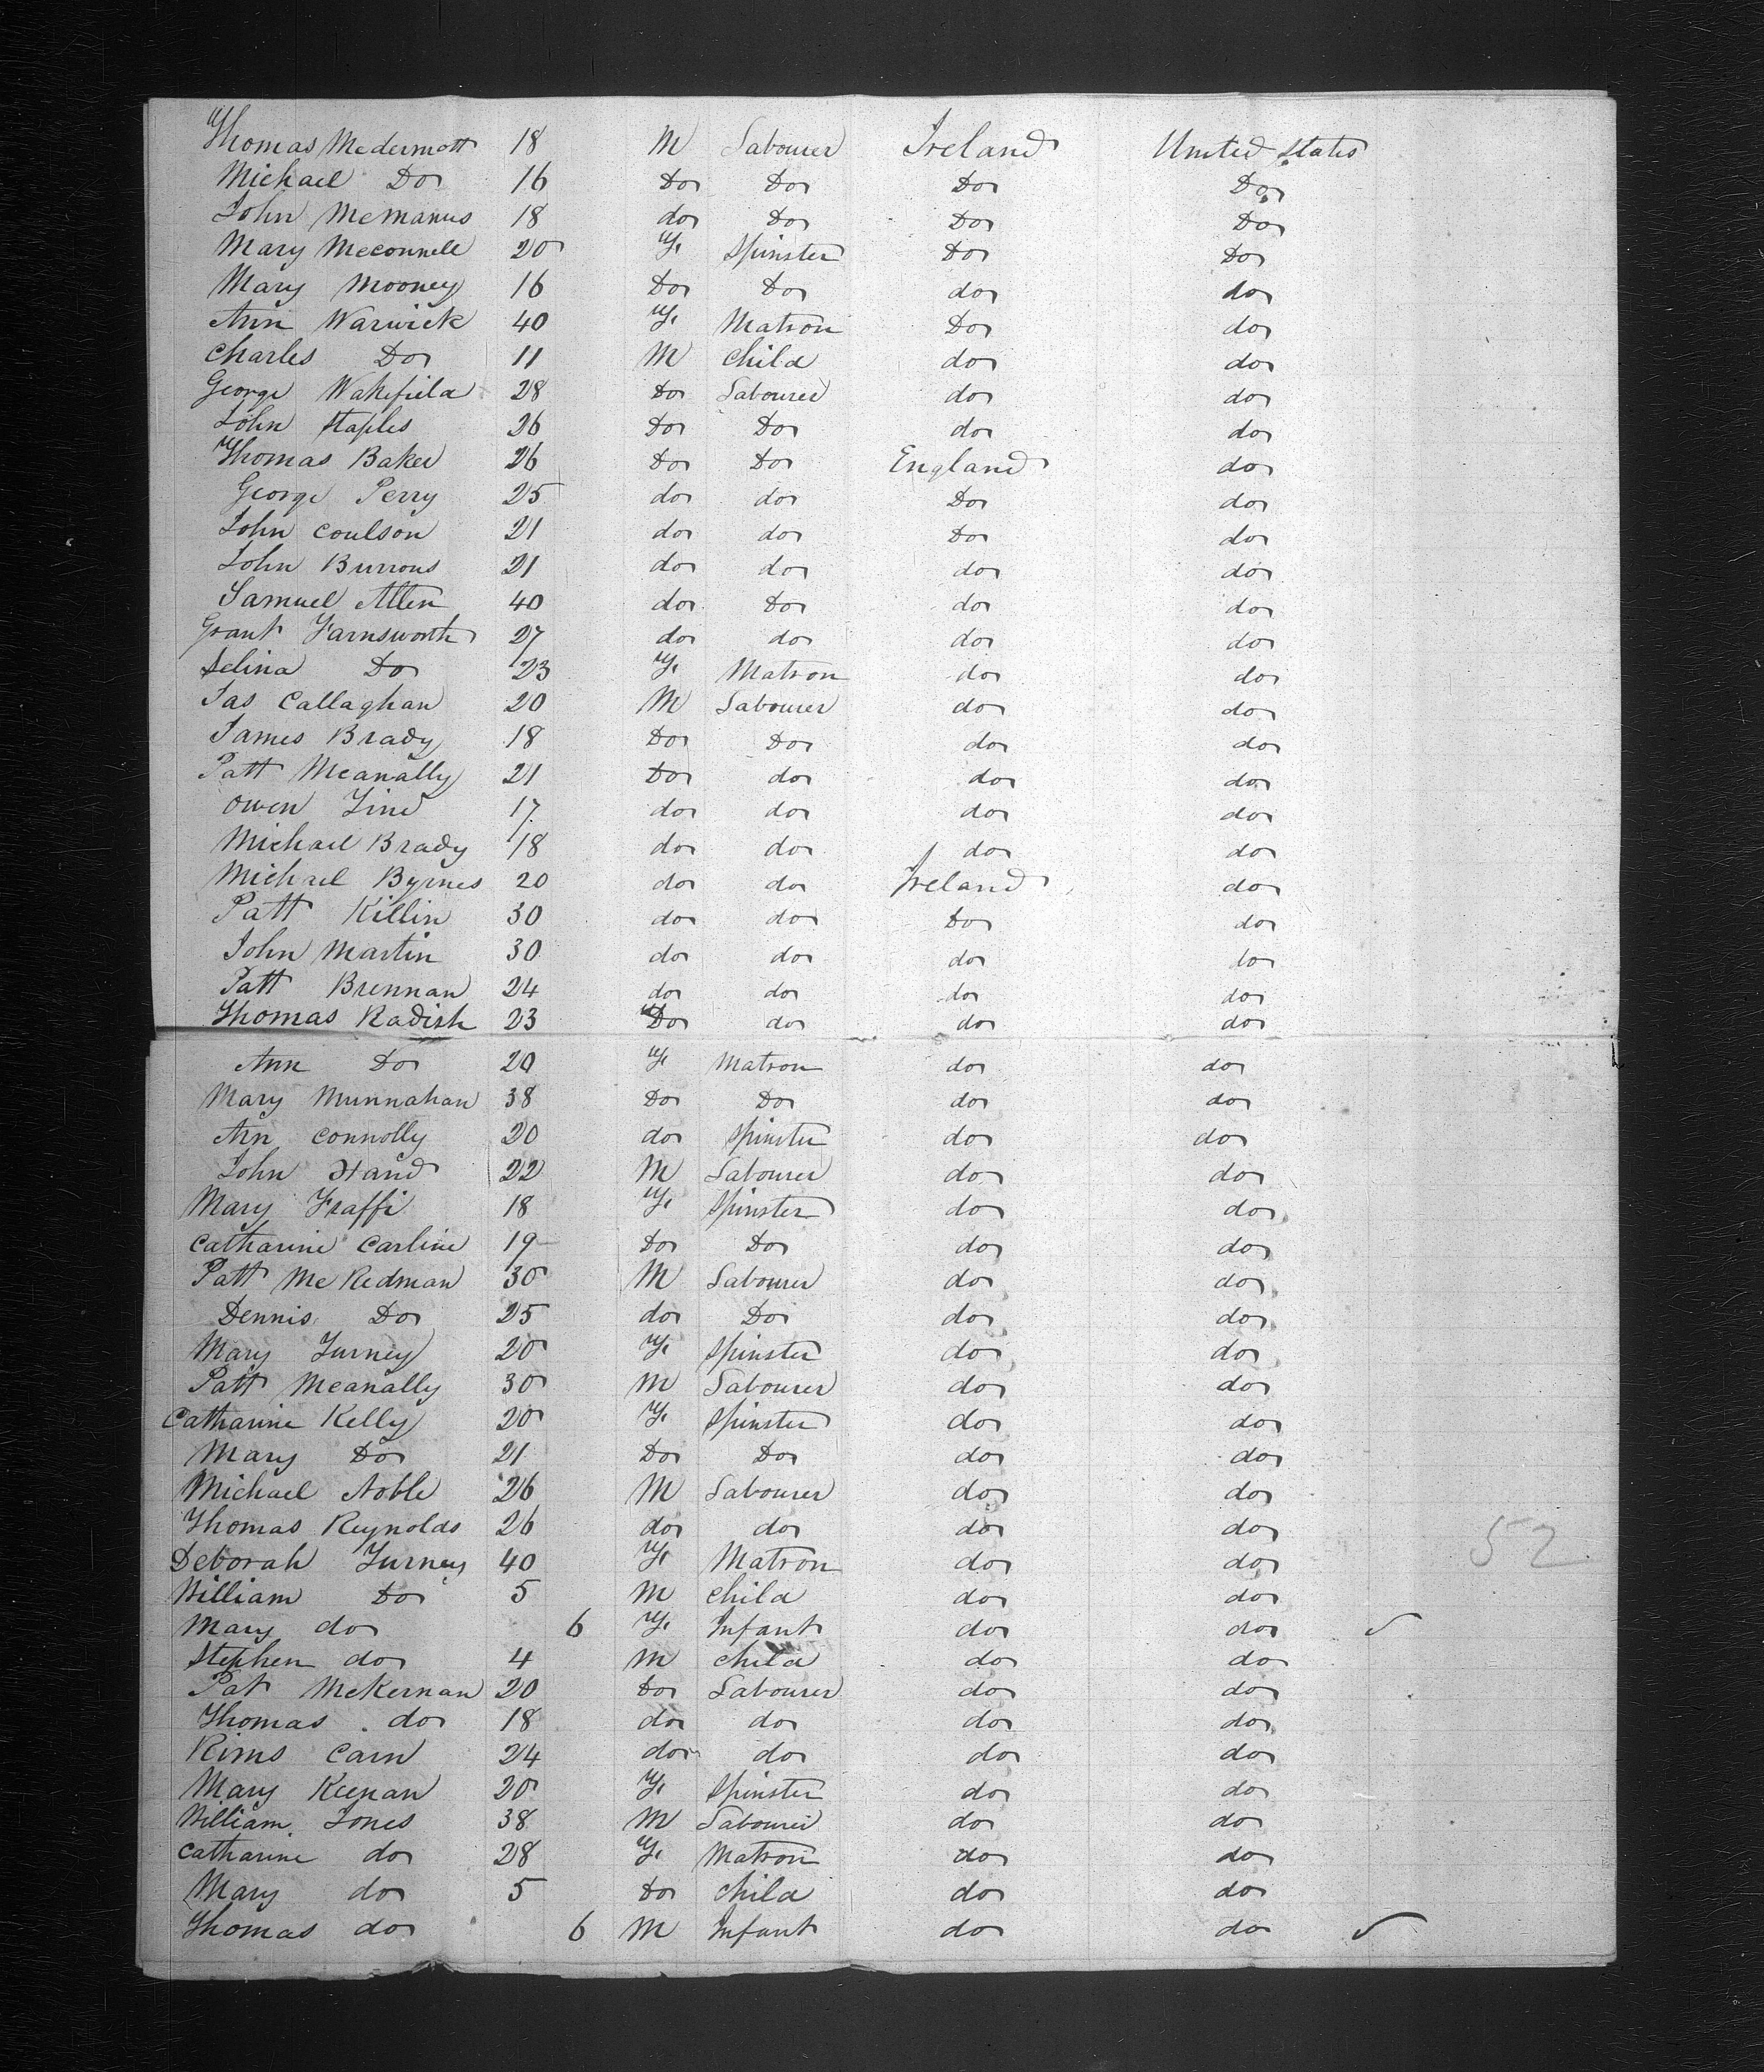 Thomas Mcdermott 18 M Labourer Ireland United States
Michael Do 16 Do Do Do Do
John McManus 18 do Do Do Do
Mary Mcconnell 20 F. Spinster Do Do
Mary Mooney 16 Do Do do do
Ann Warwick 40 F. Matron Do do
Charles Do 11 M Child do do
George Wakefield 28 Do Labourer do do
John Staples 26 Do Do do do
Thomas Baker 26 Do Do England do
George Perry 25 do do Do do
John Coulson 21 do do Do do
John Burrous 21 do do do do
Samuel Allen 40 do Do do do
Grant Farnsworth 27 do do do do
Selina Do 23 F. Matron do do
Jas Callaghan 20 M Labourer do do
James Brady 18 Do Do do do
Patt Mcanally 21 Do do do do
Owen Find 17 do do do do
Michael Brady 18 do do do do
Michael Byrnes 20 do do Ireland do
Patt Killin 30 do do Do do
John Martin 30 do do do do
Patt Brennan 24 do do do do
Thomas Radish 23 Do do do do
Ann Do 20 F. Matron do do
Mary Munnahan 38 Do Do do do
Ann Connolly 20 do Spinster do do
John Hand 22 M Labourer do do
Mary Fraffi 18 F. Spinster do do
Catharine Carline 19 Do Do do do
Patt McRedman 30 M Labourer do do
Dennis Do 25 do Do do do
Mary Furney 20 F. Spinster do do
Patt Mcanally 30 M Labourer do do
Catharine Kelly 20 F. Spinster do do
Mary Do 21 Do Do do do
Michael Noble 26 M Labourer do do
Thomas Reynolds 26 do do do do
52
Deborah Furney 40 F. Matron do do
William Do 5 M Child do do
Mary do 6 F. Infant do do ✓
Stephen do 4 M Child do do
Pat McKernan 20 Do Labourer do do
Thomas do 18 do do do do
Rims Carn 24 do do do do
Mary Keenan 20 F. Spinster do do
William Jones 38 M Labourer do do
Catharine do 28 F. Matron do do
Mary do 5 Do Child do do
Thomas do 6 M Infant do do ✓